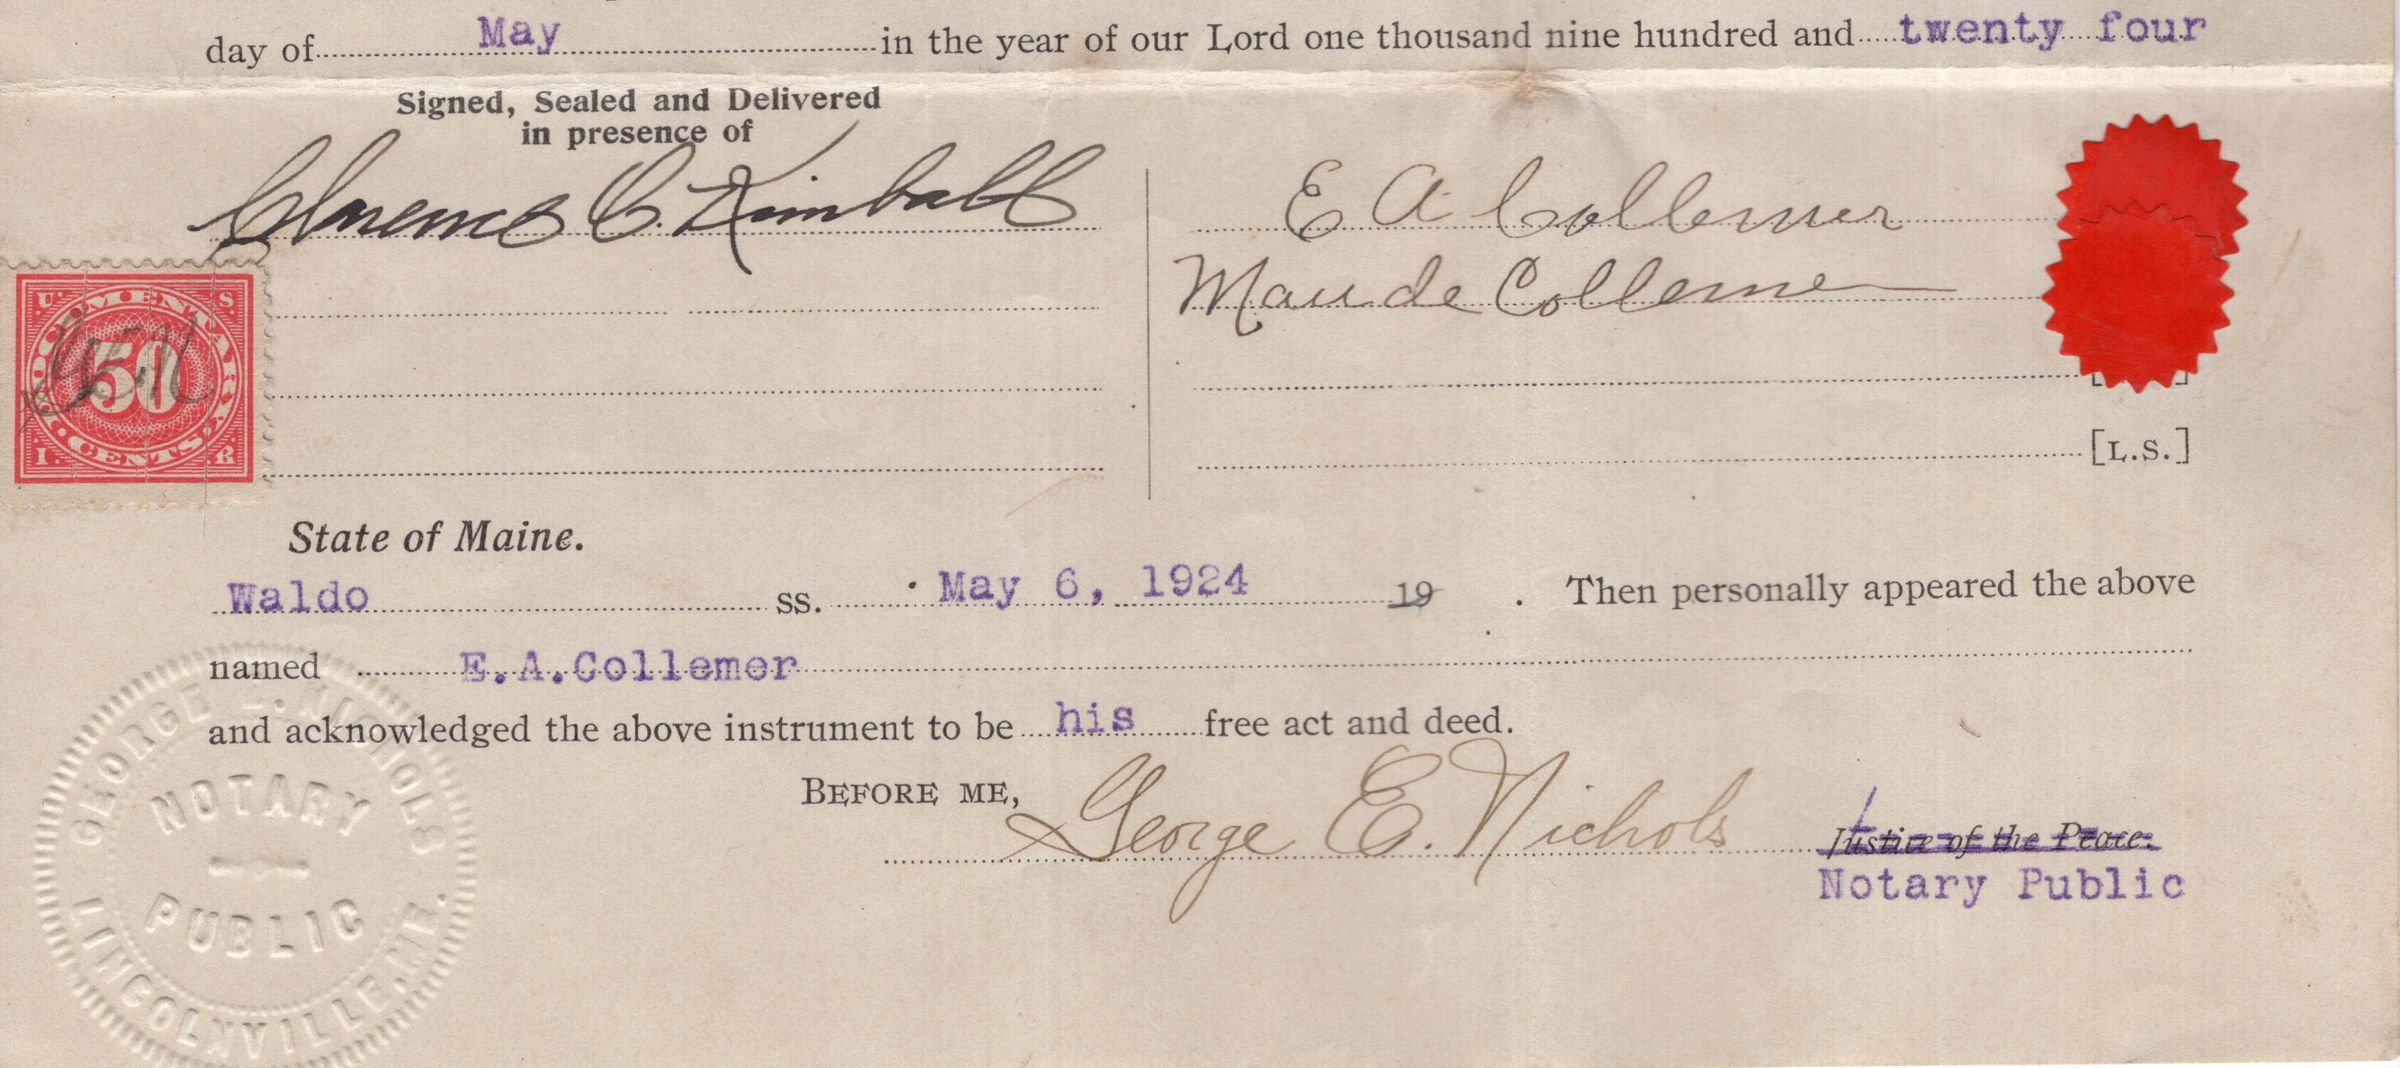 day of May in the year of our Lord one thousand nine hundred and twenty four
Signed, Sealed and Delivered
in presence of
Clarence C. Kimball
E A Collemer
Maude Collemer
U. S.
DOCUMENTARY
50
G E N
CENTS
I. R
[L.S.]
State of Maine.
Waldo ss. May 6, 1924 19 . Then personally appeared the above
named E.A.Collemer
and acknowledged the above instrument to be his free act and deed.
BEFORE ME,
George E. Nichols Justice of the Peace.
Notary Public
GEORGE E. NICHOLS
NOTARY
PUBLIC
LINCOLNVILLE, ME.